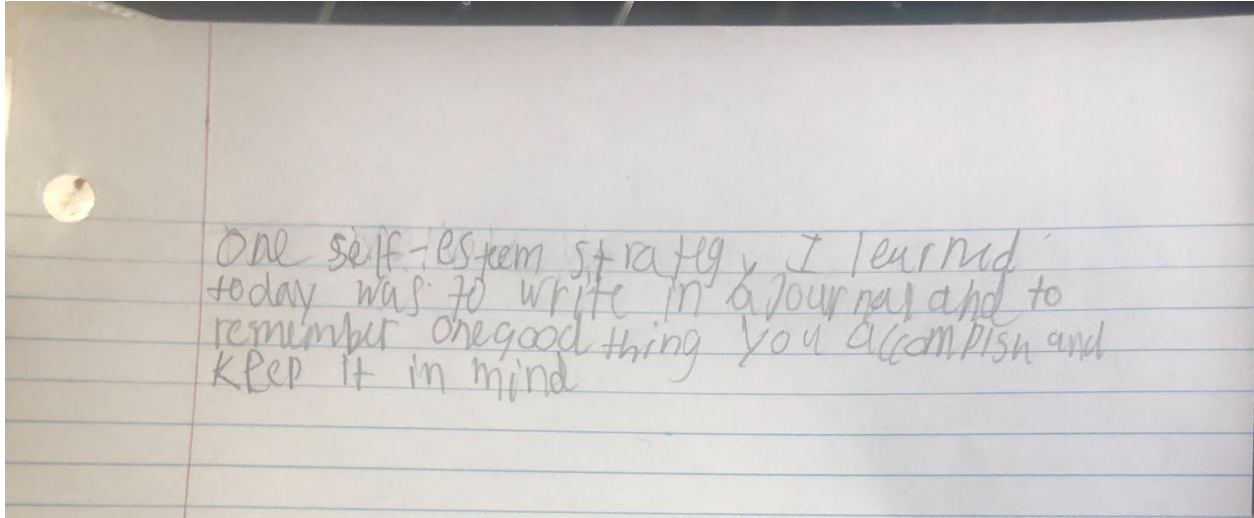 One self-esteem strategy I learned
today was to write in a Journal and to
remember one good thing you accomplish and
keep it in mind